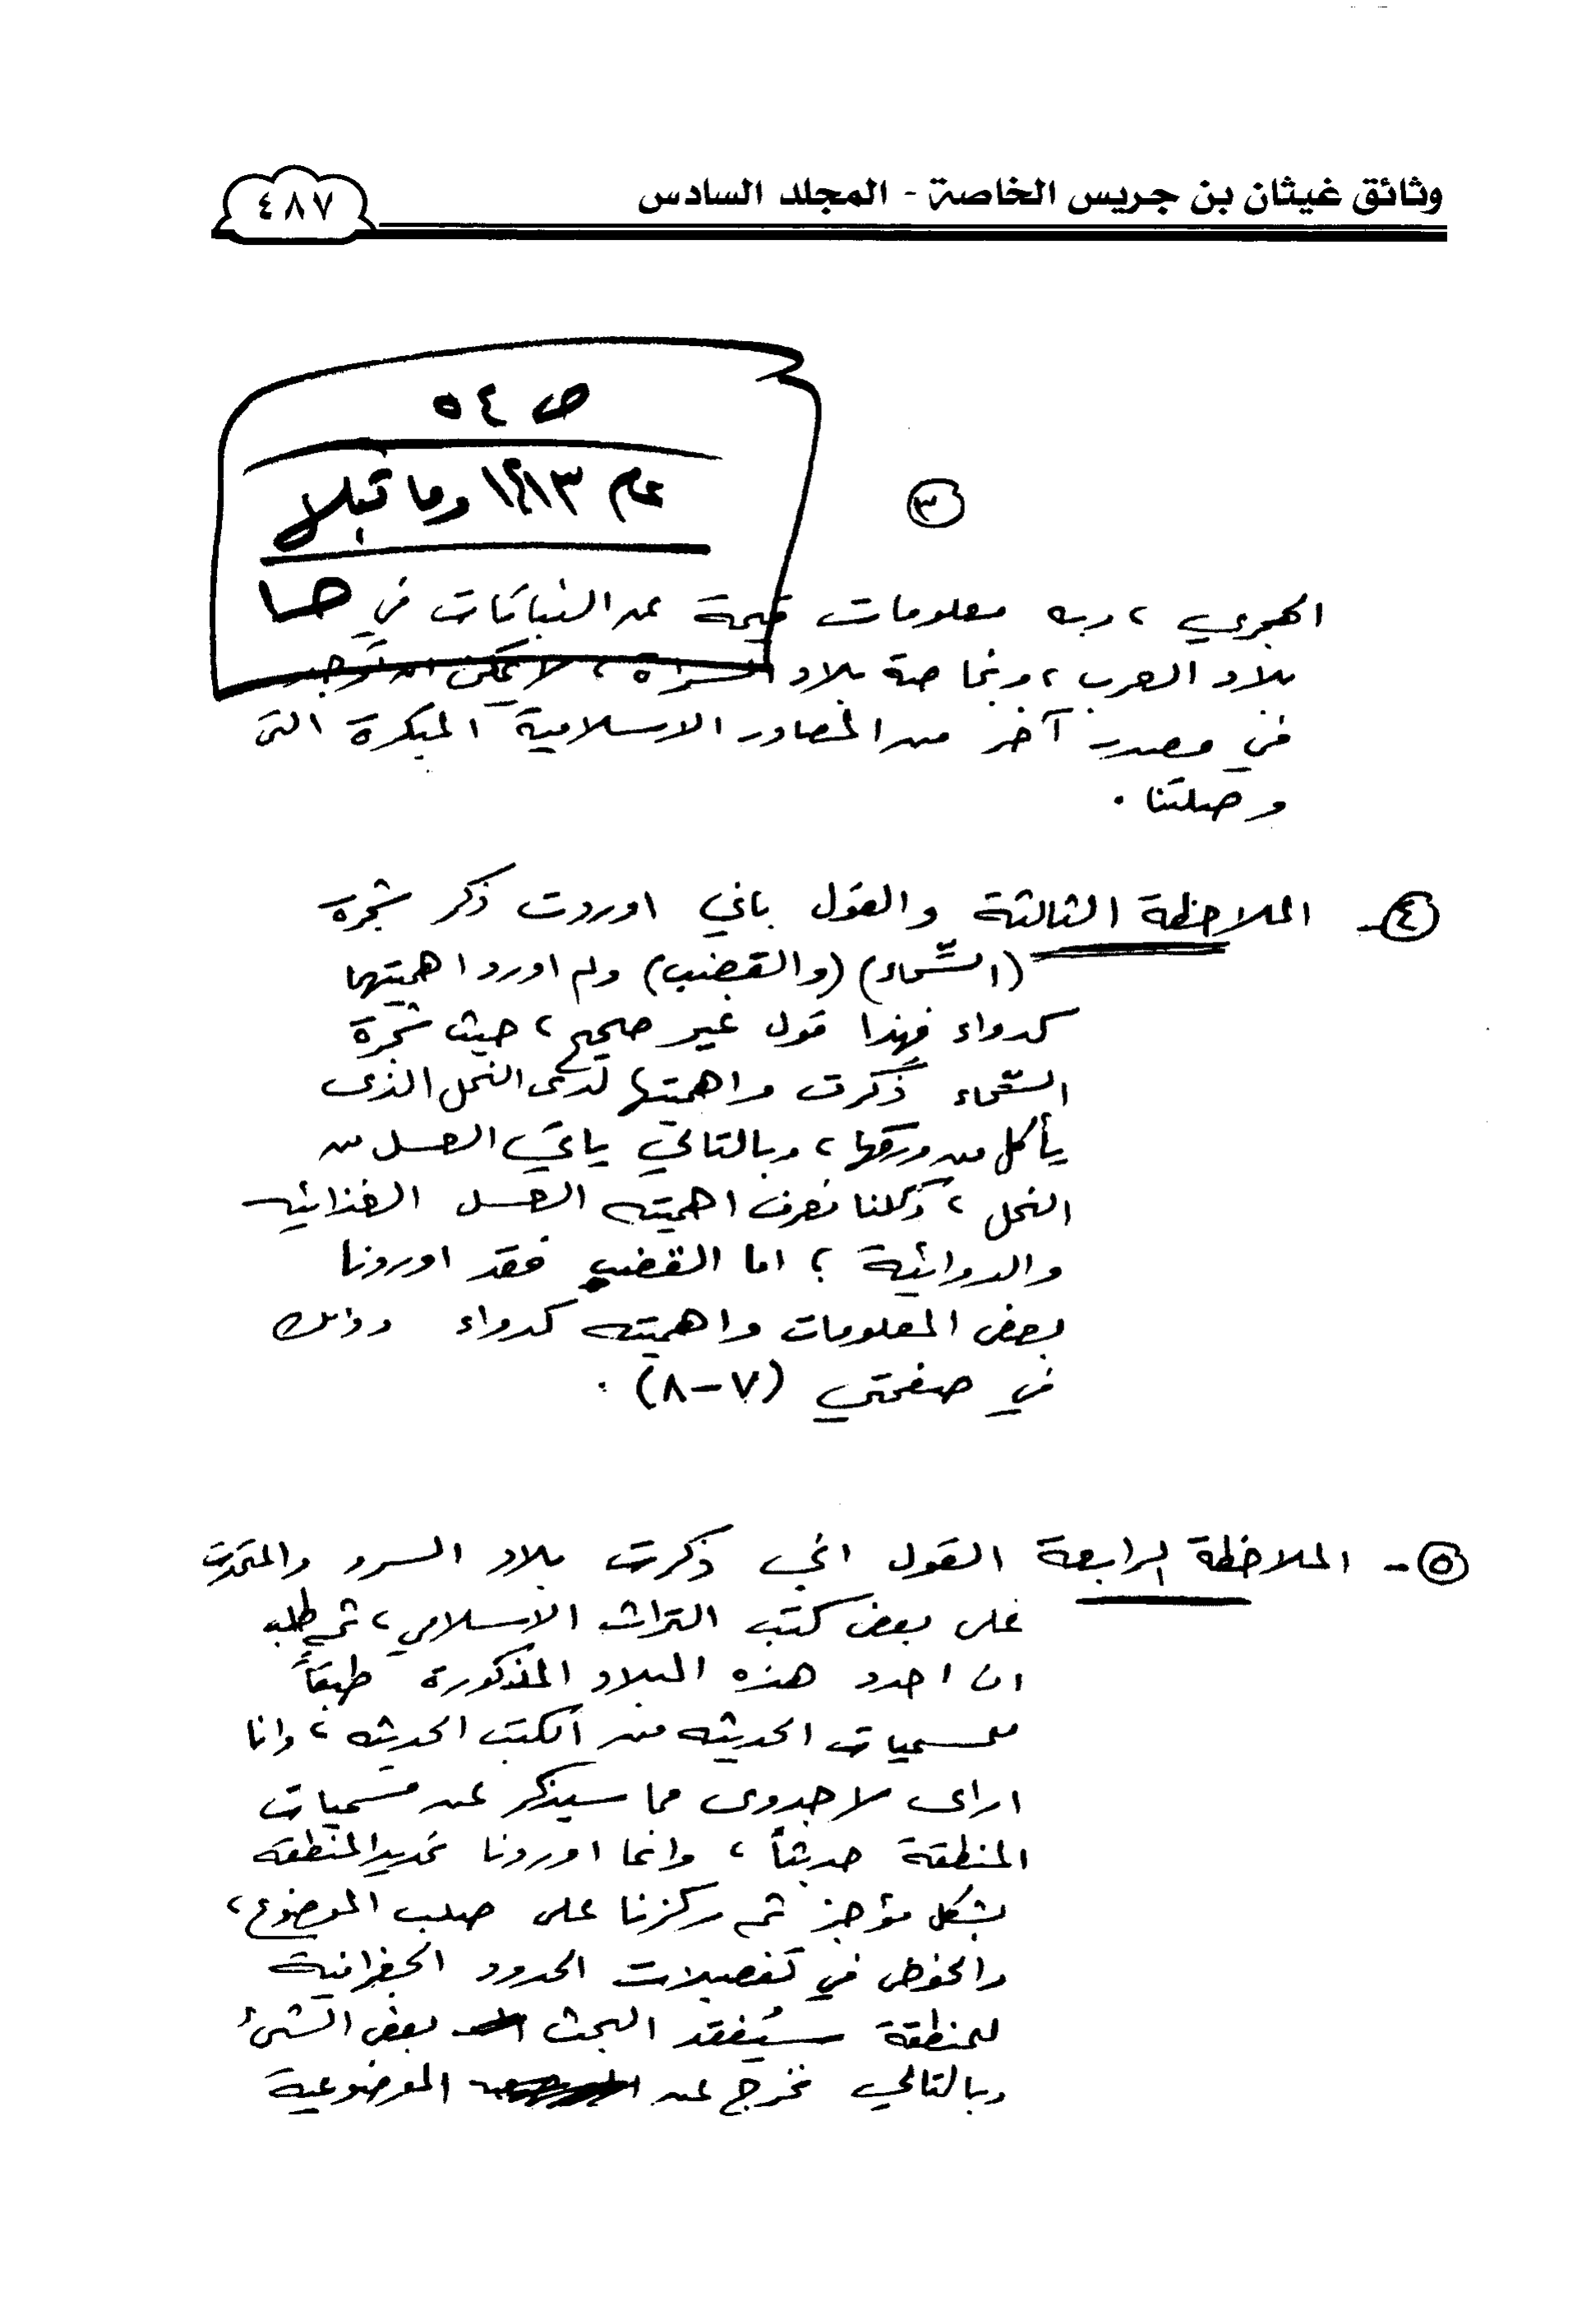 وثائق غيثان بن جريس الخاصة - المجلد السادس
٤٨٧
ص ٥٤
عام
وما قبلا
٣
الهجري، وبه معلومات قيمة عن النباتات في
بلاد العرب، وبخاصة بلاد السراة، لا يمكن ان توجد
في مصدر آخر من المصادر الاسلامية المبكرة التى
وصلتنا.
٤- الملاحظة الثالثة والقول باني اوردت ذكر شجرة
(الشّماء) (والقضب) ولم اورد اهميتهما
كدواء فهذا قول غير صحيح، حيث شجرة
ذكرت واهميتها لدى النحل الذى
يأكل من ورقها، وبالتالي ياتي العسل من
النحل، وكلنا نعرف اهميته العسل الغذائيه
والدوائية؛ اما القضب فقد اوردنا
بعض المعلومات واهميته كدواء وذلك
في صفحتي (٧-٨).
٥- الملاحظة الرابعة القول اني ذكرت بلاد السرو
على بعض كتب التراث الاسلامي، ثم طلب
ان احدد هذه البلاد المذكورة طبقاً
للمسميات الحديثه من الكتب الحديثه، وانا
ارى لا جدوى مما سيذكر عن مسميات
المنطقة حديثاً، وانما اوردنا تحديد المنطقه
بشكل مؤجز ثم ركزنا على صلب الموضوع،
والخوض في تفصيلات الحدود الجغرافية
للمنطقة سيُفقد البحث بعض الشئ
وبالتالي نخرج عن الموضوعية